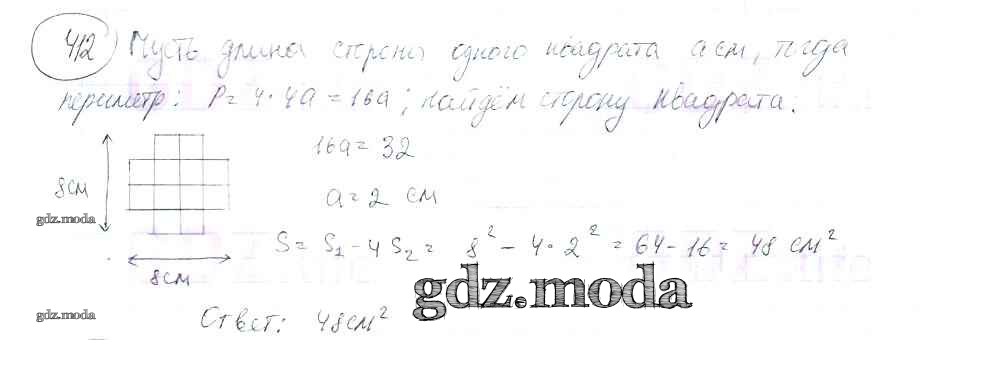 412) Пусть длина стороны одного квадрата a см, тогда
периметр: P = 4 · 4a = 16a; найдём сторону квадрата.
16a = 32
8см
a = 2 см
gdz.moda
S = S₁ - 4S₂ = 8² - 4 · 2² = 64 - 16 = 48 см²
8см
gdz.moda
gdz.moda
Ответ: 48см²